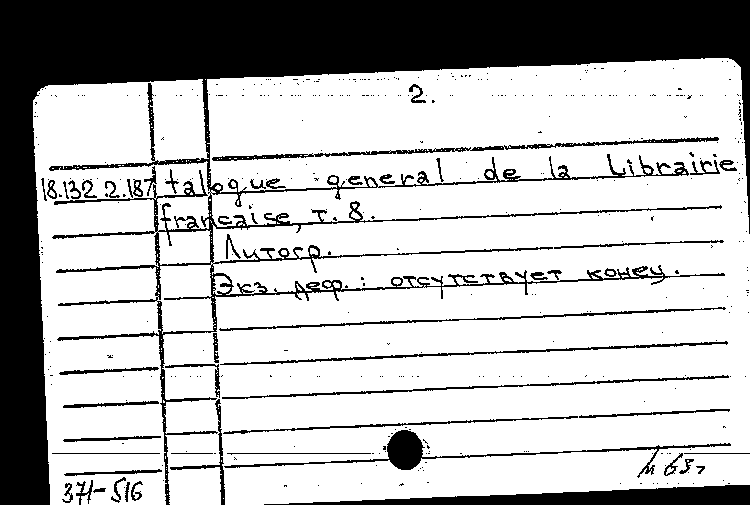 2.
18.132.2.187 talogue general de la Librairie
francaise, т. 8.
Литогр.
Экз. деф.: отсутствует конец.
371-516